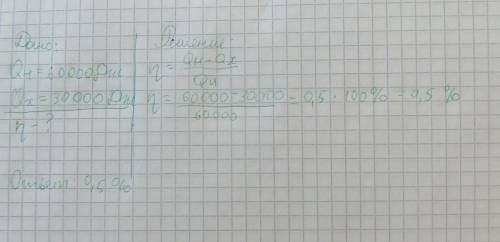 Дано:
Qн = 60000 Дж
Qх = 30000 Дж
η - ?
Решение:
η = Qн - Qх / Qн
η = 60000 - 30000 / 60000 = 0,5 · 100% = 0,5 %
Ответ: 0,5%